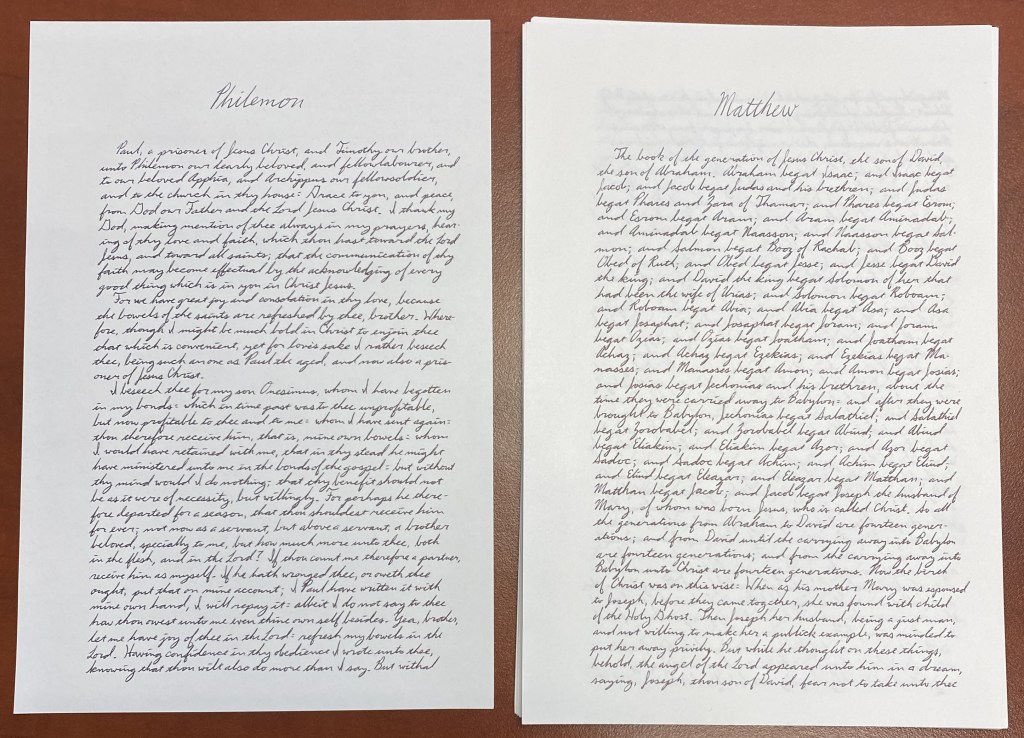 Philemon
Paul, a prisoner of Jesus Christ, and Timothy our brother,
unto Philemon our dearly beloved, and fellowlabourer, and
to our beloved Apphia, and Archippus our fellowsoldier,
and to the church in thy house: Grace to you, and peace,
from God our Father and the Lord Jesus Christ. I thank my
God, making mention of thee always in my prayers, hear-
ing of thy love and faith, which thou hast toward the Lord
Jesus, and toward all saints; that the communication of thy
faith may become effectual by the acknowledging of every
good thing which is in you in Christ Jesus.
For we have great joy and consolation in thy love, because
the bowels of the saints are refreshed by thee, brother. Where-
fore, though I might be much bold in Christ to enjoin thee
that which is convenient, yet for love's sake I rather beseech
thee, being such an one as Paul the aged, and now also a pris-
oner of Jesus Christ.
I beseech thee for my son Onesimus, whom I have begotten
in my bonds: which in time past was to thee unprofitable,
but now profitable to thee and to me: whom I have sent again:
thou therefore receive him, that is, mine own bowels: whom
I would have retained with me, that in thy stead he might
have ministered unto me in the bonds of the gospel: but without
thy mind would I do nothing; that thy benefit should not
be as it were of necessity, but willingly. For perhaps he there-
fore departed for a season, that thou shouldest receive him
for ever; not now as a servant, but above a servant, a brother
beloved, specially to me, but how much more unto thee, both
in the flesh, and in the Lord? If thou count me therefore a partner,
receive him as myself. If he hath wronged thee, or oweth thee
ought, put that on mine account; I Paul have written it with
mine own hand, I will repay it: albeit I do not say to thee
how thou owest unto me even thine own self besides. Yea, brother,
let me have joy of thee in the Lord: refresh my bowels in the
Lord. Having confidence in thy obedience I wrote unto thee,
knowing that thou wilt also do more than I say. But withal
Matthew
The book of the generation of Jesus Christ, the son of David,
the son of Abraham. Abraham begat Isaac; and Isaac begat
Jacob; and Jacob begat Judas and his brethren; and Judas
begat Phares and Zara of Thamar; and Phares begat Esrom;
and Esrom begat Aram; and Aram begat Aminadab;
and Aminadab begat Naasson; and Naasson begat Sal-
mon; and Salmon begat Booz of Rachab; and Booz begat
Obed of Ruth; and Obed begat Jesse; and Jesse begat David
the king; and David the king begat Solomon of her that
had been the wife of Urias; and Solomon begat Roboam;
and Roboam begat Abia; and Abia begat Asa; and Asa
begat Josaphat; and Josaphat begat Joram; and Joram
begat Ozias; and Ozias begat Joatham; and Joatham begat
Achaz; and Achaz begat Ezekias; and Ezekias begat Ma-
nasses; and Manasses begat Amon; and Amon begat Josias;
and Josias begat Jechonias and his brethren, about the
time they were carried away to Babylon: and after they were
brought to Babylon, Jechonias begat Salathiel; and Salathiel
begat Zorobabel; and Zorobabel begat Abiud; and Abiud
begat Eliakim; and Eliakim begat Azor; and Azor begat
Sadoc; and Sadoc begat Achim; and Achim begat Eliud;
and Eliud begat Eleazar; and Eleazar begat Matthan; and
Matthan begat Jacob; and Jacob begat Joseph the husband of
Mary, of whom was born Jesus, who is called Christ. So all
the generations from Abraham to David are fourteen gener-
ations; and from David until the carrying away into Babylon
are fourteen generations; and from the carrying away into
Babylon unto Christ are fourteen generations. Now the birth
of Christ was on this wise: When as his mother Mary was espoused
to Joseph, before they came together, she was found with child
of the Holy Ghost. Then Joseph her husband, being a just man,
and not willing to make her a publick example, was minded to
put her away privily. But while he thought on these things,
behold, the angel of the Lord appeared unto him in a dream,
saying, Joseph, thou son of David, fear not to take unto thee